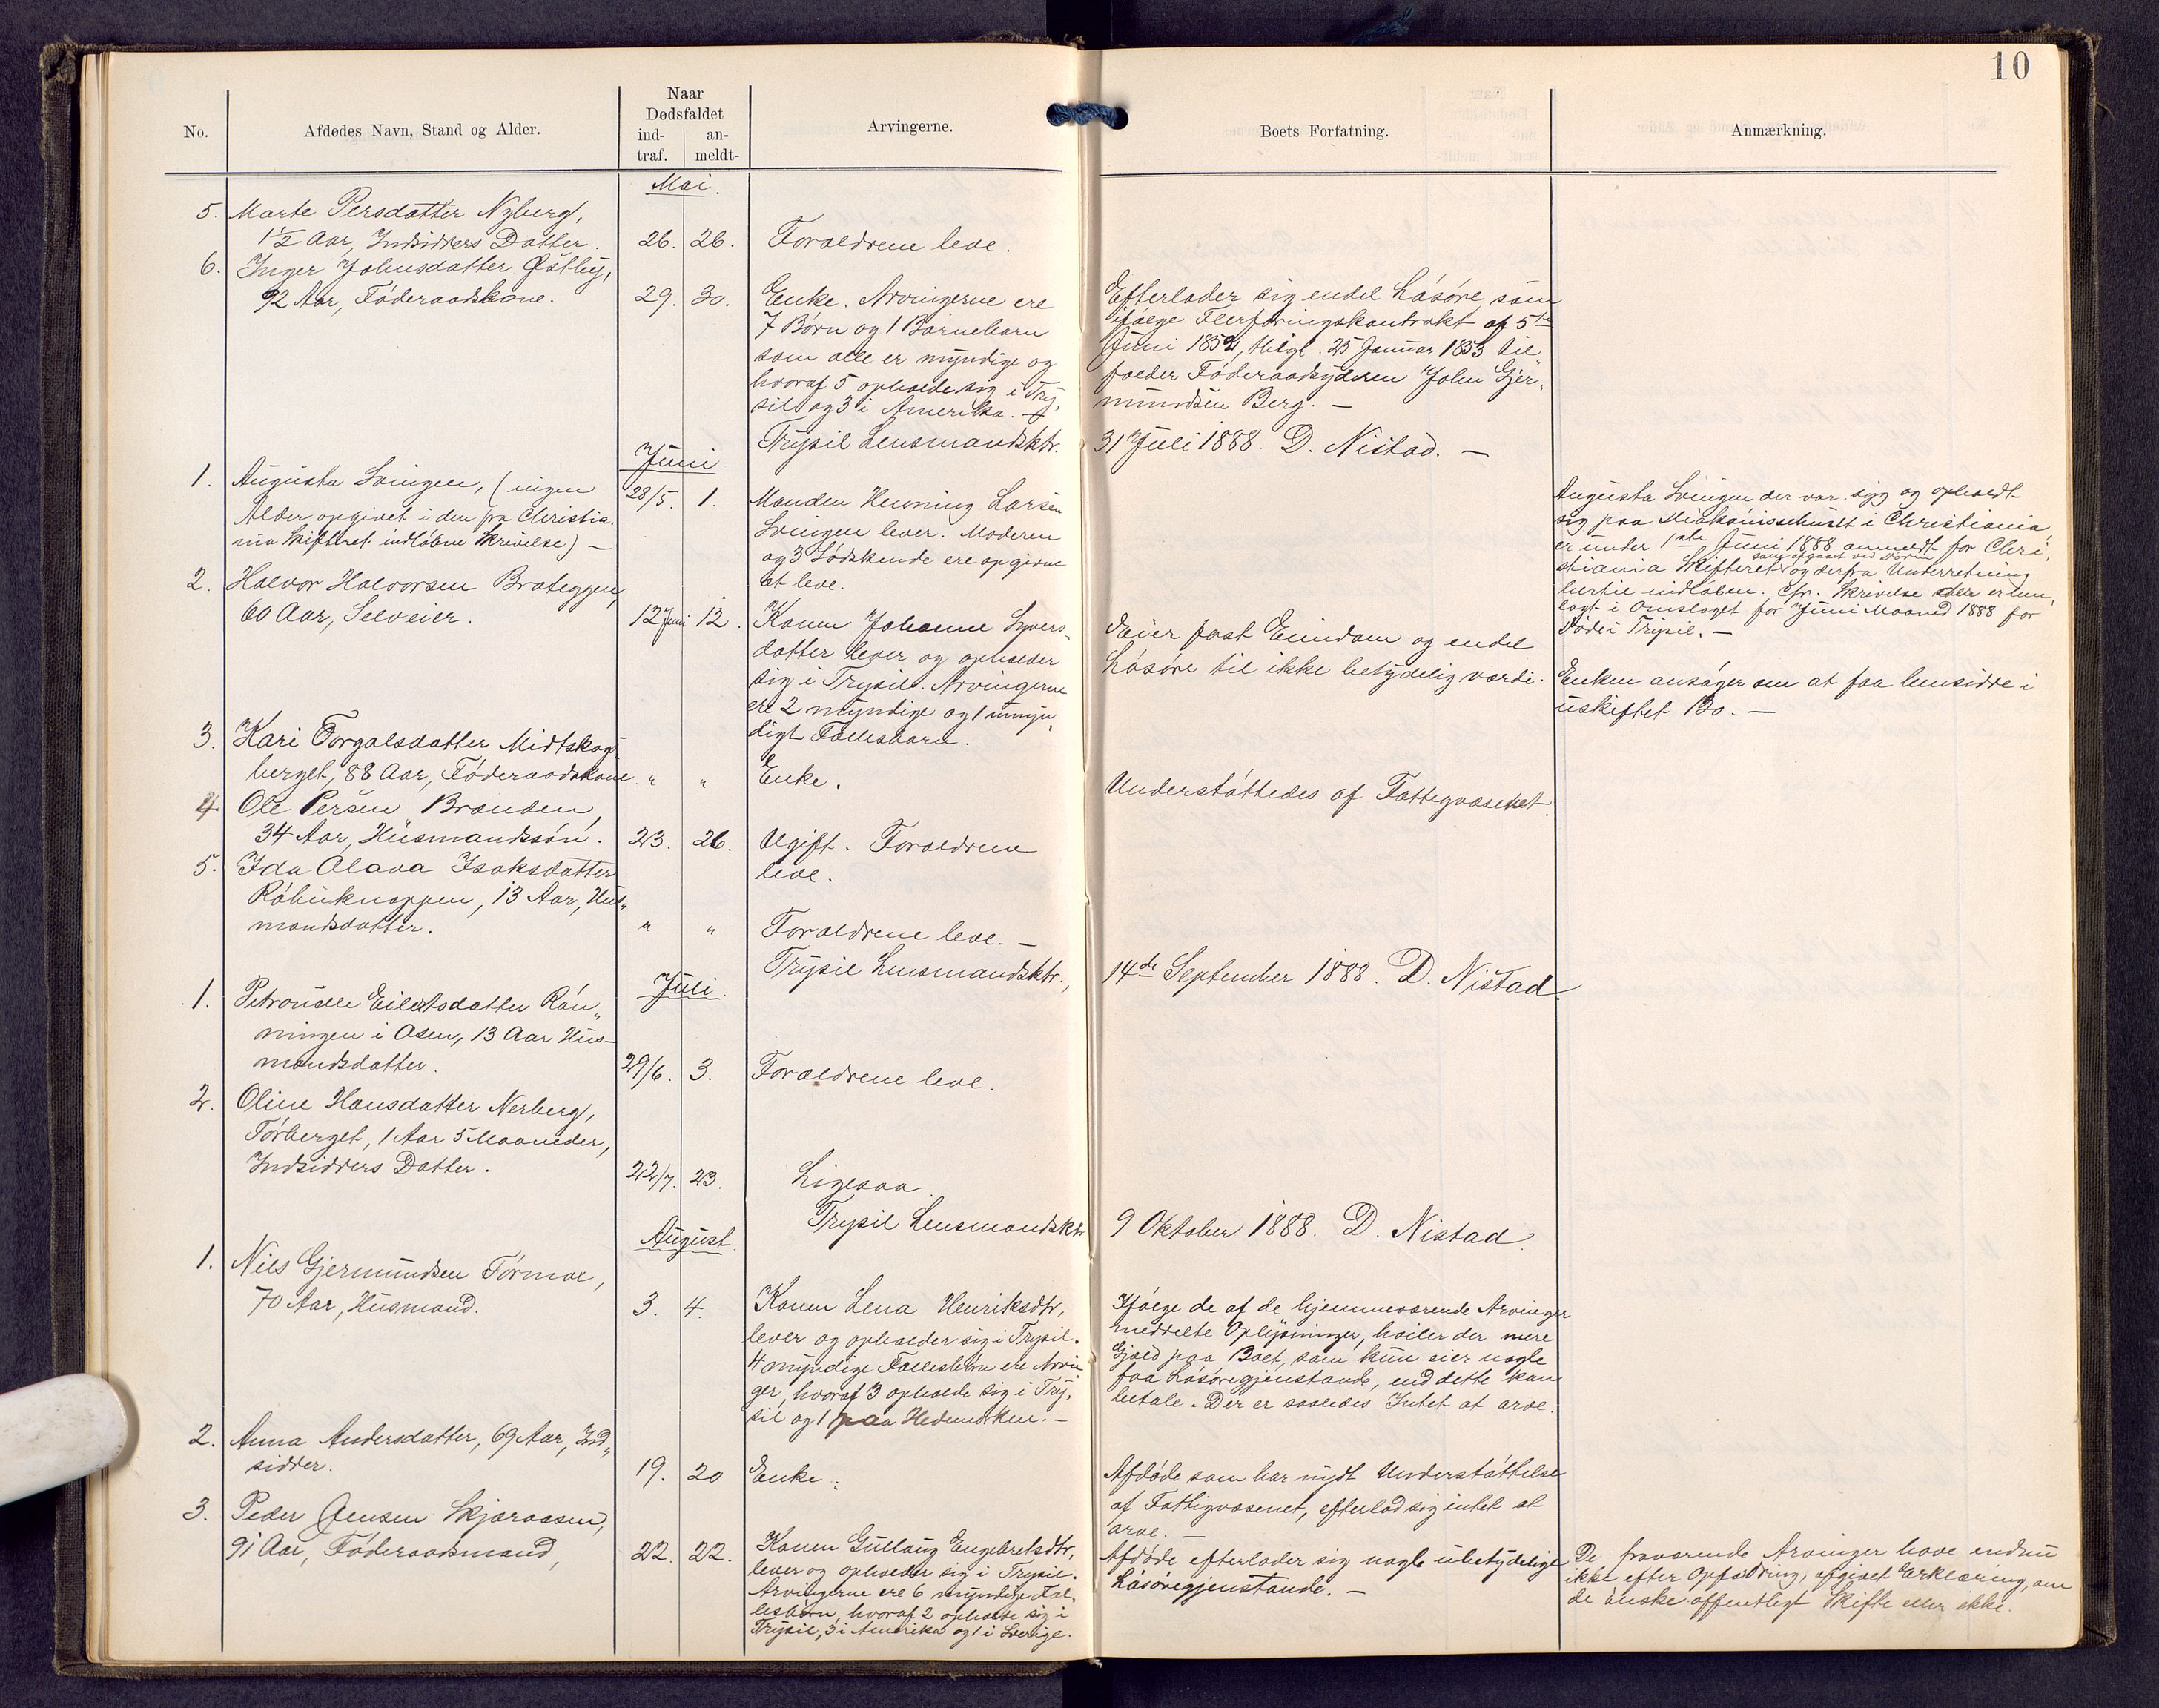 10
No.
Afdødes Navn, Stand og Alder.
Naar
Dødsfaldet
ind-
traf.
an-
meldt-
Arvingerne.
Boets Forfatning.
Anmærkning.
Mai.
5. Marte Persdatter Nyberg,
1½ Aar, Indsidders Datter. 26. 26. Forældrene leve.
6. Inger Johnsdatter Østby,
92 Aar, Föderaadskone. 29. 30.
Enke. Arvingerne ere
7 Børn og 1 Barnebarn
som alle er myndige og
hvoraf 5 opholde sig i Try„
sil og 3 i Amerika. —
Efterlader sig endel Lösöre, som
ifölge Flerföringskontrakt af 5te
Juni 1852, thlgl. 25 Januar 1853 til„
falder Föderaadsyderen John Gjer„
mundsen Berg. —
Trysil Lensmandsktr. 31 Juli 1888. D. Nistad. —
Juni
1. Augusta Svingen, (ingen
Alder opgivet i den fra Christia„
nia Skifteret indløbne Skrivelse) —
28/5. 1.
Manden Henning Larsen
Svingen lever. Moderen
og 3 Södskende ere opgivne
at leve.
Augusta Svingen der var syg og opholdt
sig paa Diakonissehuset i Christiania
er under 1ste Juni 1888 anmeldt for Chri„
stiania Skifteret som afgaaet ved Døden og derfra Underretning
hertil indløben. Cfr. Skrivelse der er hen„
lagt i Omslaget for Juni Maaned 1888 for
Döde i Trysil. —
2. Halvor Halvorsen Brateggen,
60 Aar, Selveier. 12 Juni 12.
Konen Johanne Syvers„
datter lever og opholder
sig i Trysil. Arvingerne
ere 2 myndige og 1 umyn„
digt Fællesbarn.
Eier fast Eiendom og endel
Lösöre til ikke betydelig værdi.
Enken ansöger om at faa hensidde i
uskiftet Bo. —
3. Kari Torgalsdatter Midtskog„
berget, 88 Aar, Föderaadskone. „ „ Enke. Understöttedes af Fattigvæsenet.
4. Ole Persen Branden,
34 Aar, Husmandssön. 23. 26. Ugift. Forældrene
leve.
5. Ida Olava Isaksdatter
Röhueknappen, 13 Aar, Hus„
mandsdatter. „ „ Forældrene leve. —
Trysil Lensmandsktr., 14de September 1888. D. Nistad.
Juli.
1. Petronelle Eilertsdatter Rön„
ningen i Osen, 13 Aar Hus-
mandsdatter. 29/6. 3. Forældrene leve.
2. Oline Hansdatter Nerberg,
Törberget, 1 Aar 5 Maaneder,
Indsidders Datter. 22/7. 23. Ligesaa.
Trysil Lensmandsktr 9 Oktober 1888. D. Nistad.
August.
1. Nils Gjermundsen Törmoe,
70 Aar, Husmand. 3. 4.
Konen Lena Henriksdtr,
lever og opholder sig i Trysil.
4 myndige Fællesbörn ere Arvin
ger, hvoraf 3 opholde sig i Try„
sil og 1 paa Hedemarken. —
Ifölge de af de hjemmeværende Arvinger
meddelte Oplysninger, hviler der mere
Gjæld paa Boet, som kun eier nogle
faa Lösöregjenstande, end dette kan
betale. Der er saaledes Intet at arve.
2. Anna Andersdatter, 69 Aar, Ind„
sidder. 19. 20 Enke.
Afdöde som har nydt Understöttelse
af Fattigvæsenet, efterlod sig intet at
arve. —
3. Peder Jensen Skjæraasen,
91 Aar, Föderaadsmand, 22. 22.
Konen Gullaug Engebretsdtr,
lever og opholder sig i Trysil.
Arvingerne ere 6 myndige Fæl„
lesbörn, hvoraf 2 opholde sig i
Trysil, 3 i Amerika og 1 i Sverige.
Afdöde efterlader sig nogle ubetydelige
Lösöregjenstande. —
De fraværende Arvinger have endnu
ikke efter Opfordring, afgivet Erklæring, om
de önske offentligt Skifte eller ikke.